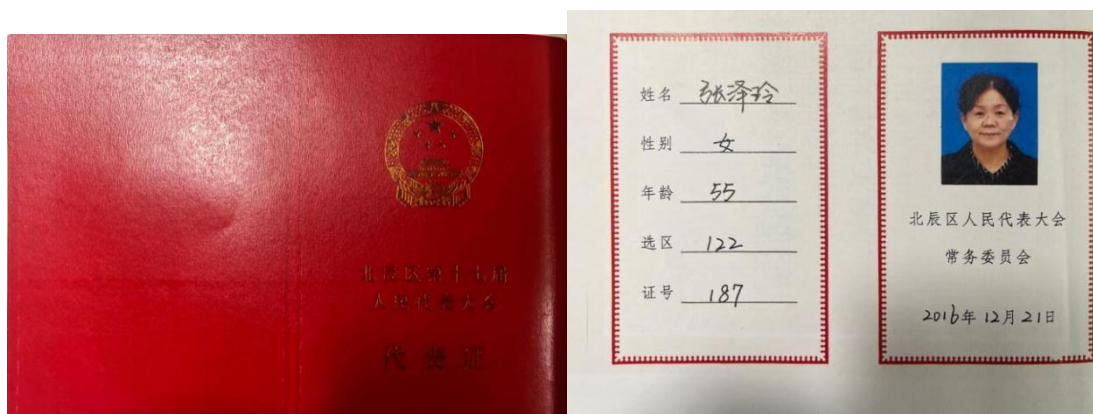 北辰区第十七届
人民代表大会
代表证
姓名 张泽玲
性别 女
年龄 55
选区 122
证号 187
北辰区人民代表大会
常务委员会
2016年12月21日